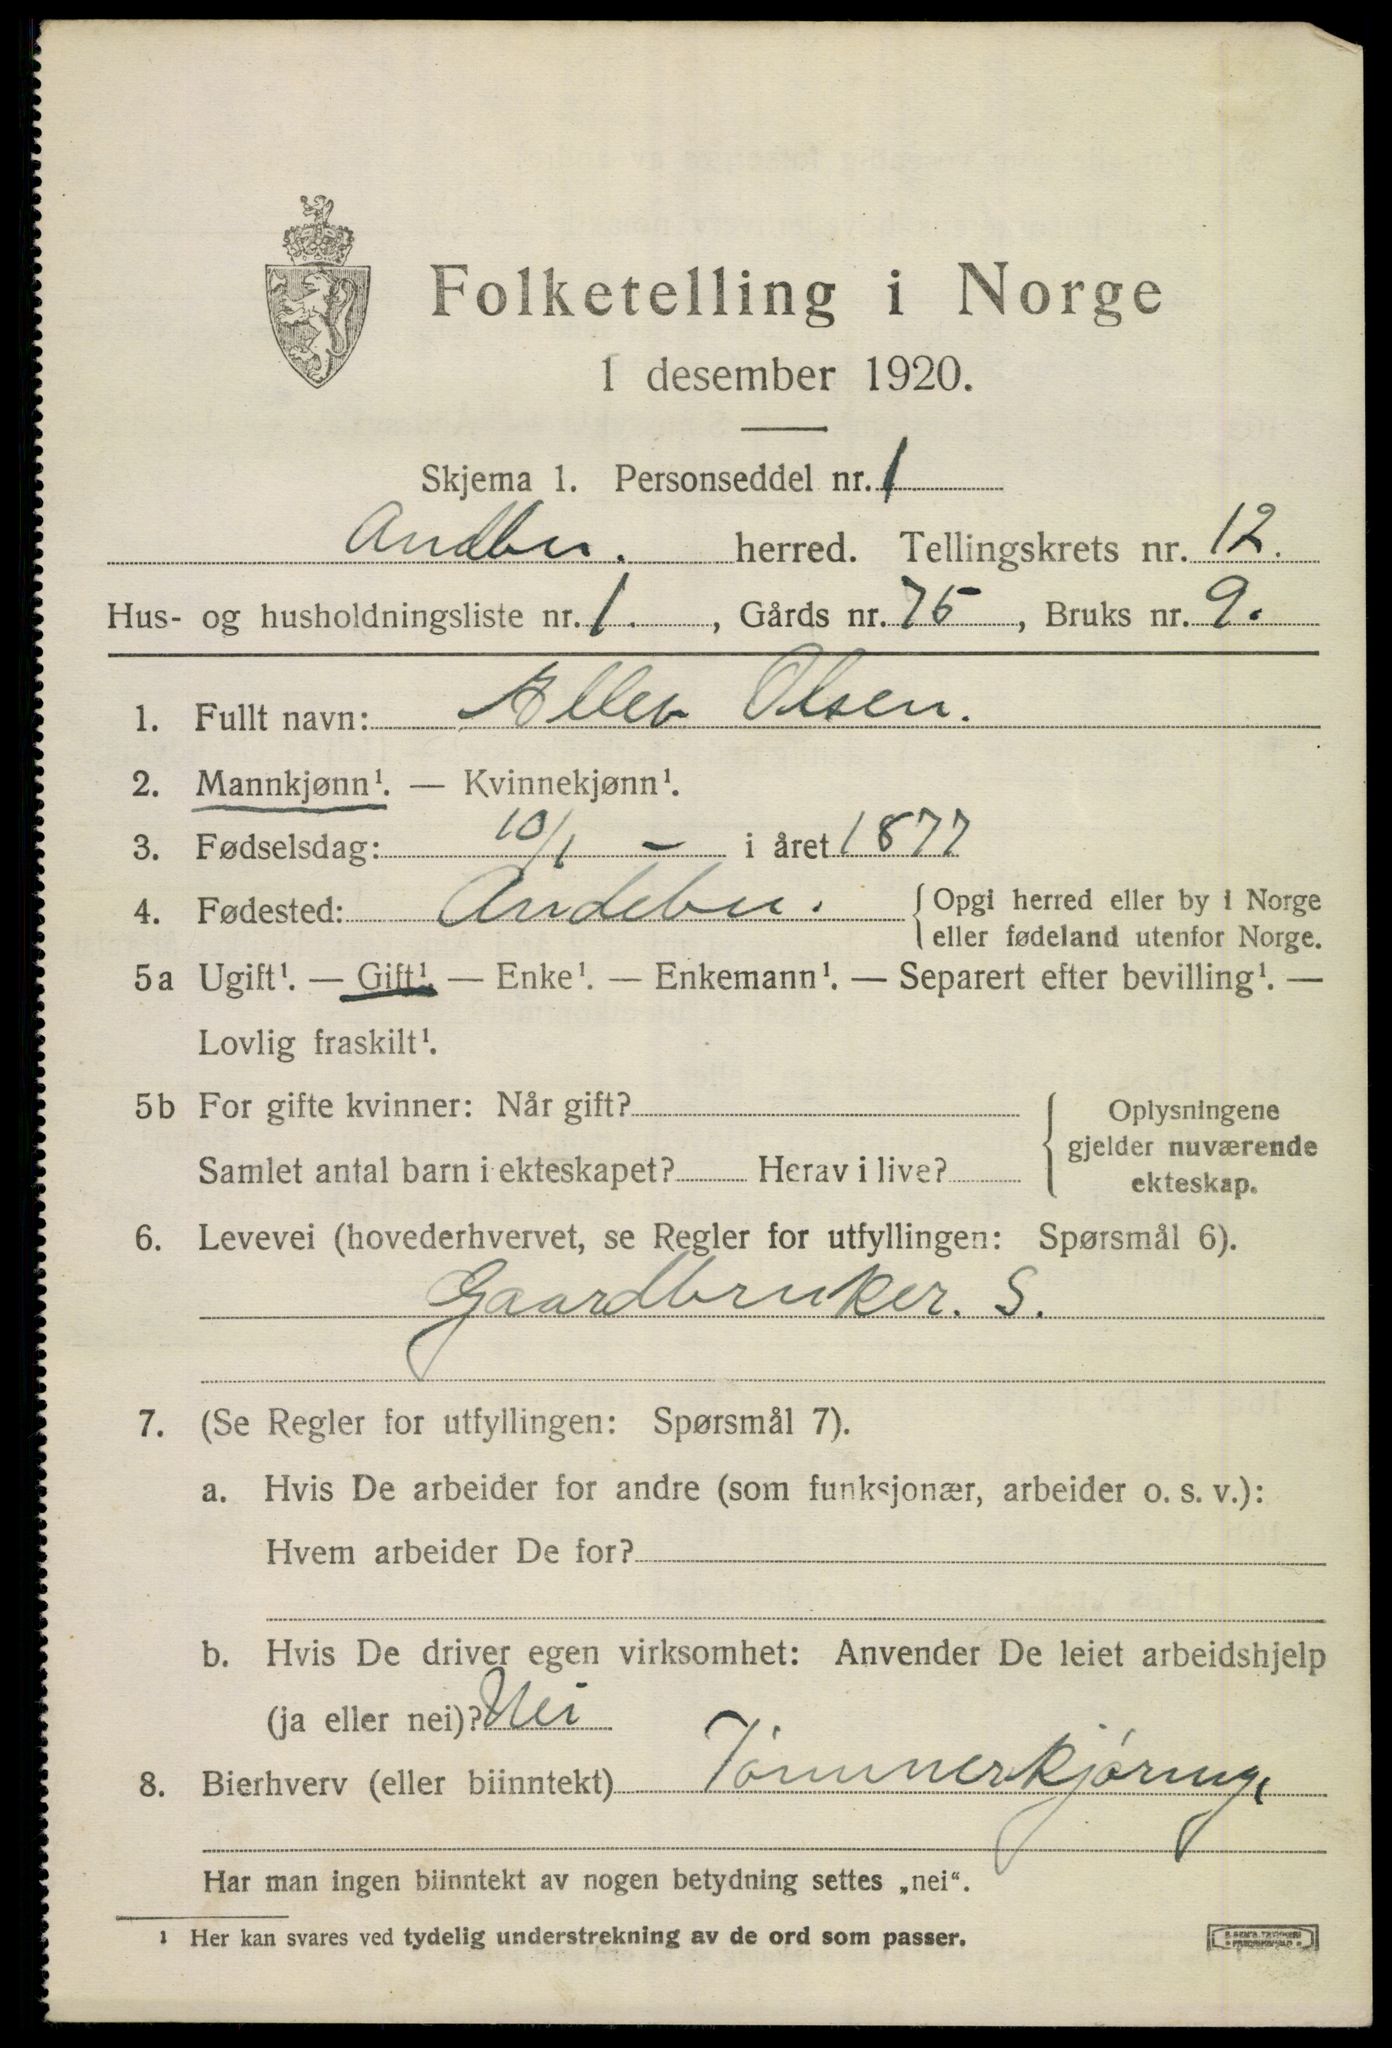 Folketelling i Norge
1 desember 1920.
Skjema 1. Personseddel nr. 1
Andbu. herred. Tellingskrets nr. 12.
Hus- og husholdningsliste nr. 1. , Gårds nr. 75 , Bruks nr. 9.
1. Fullt navn: Ellev Olsen.
2. Mannkjønn¹. — Kvinnekjønn¹.
3. Fødselsdag: 10/1 – i året 1877
4. Fødested: Andebu. { Opgi herred eller by i Norge
eller fødeland utenfor Norge.
5a Ugift¹. — Gift¹. — Enke¹. — Enkemann¹. — Separert efter bevilling¹. —
Lovlig fraskilt¹.
5b For gifte kvinner: Når gift? { Oplysningene
gjelder nuværende
Samlet antal barn i ekteskapet? Herav i live?
ekteskap.
6. Levevei (hovederhvervet, se Regler for utfyllingen: Spørsmål 6).
Gaardbruker. S.
7. (Se Regler for utfyllingen: Spørsmål 7).
a. Hvis De arbeider for andre (som funksjonær, arbeider o. s. v.):
Hvem arbeider De for?
b. Hvis De driver egen virksomhet: Anvender De leiet arbeidshjelp
(ja eller nei)? Nei
8. Bierhverv (eller biinntekt) Tømmerkjøring
Har man ingen biinntekt av nogen betydning settes „nei“.
¹ Her kan svares ved tydelig understrekning av de ord som passer.